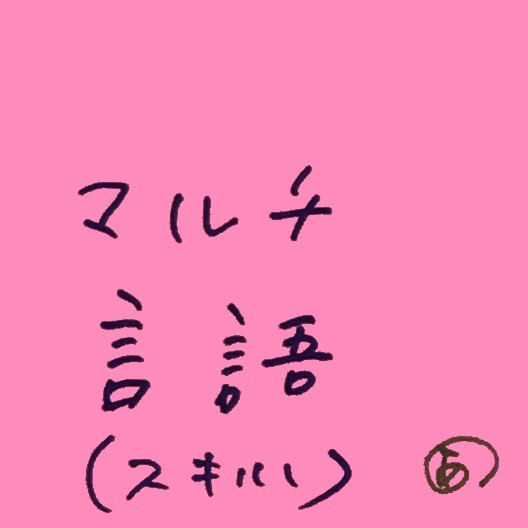 マルチ
言語
(スキル) あ